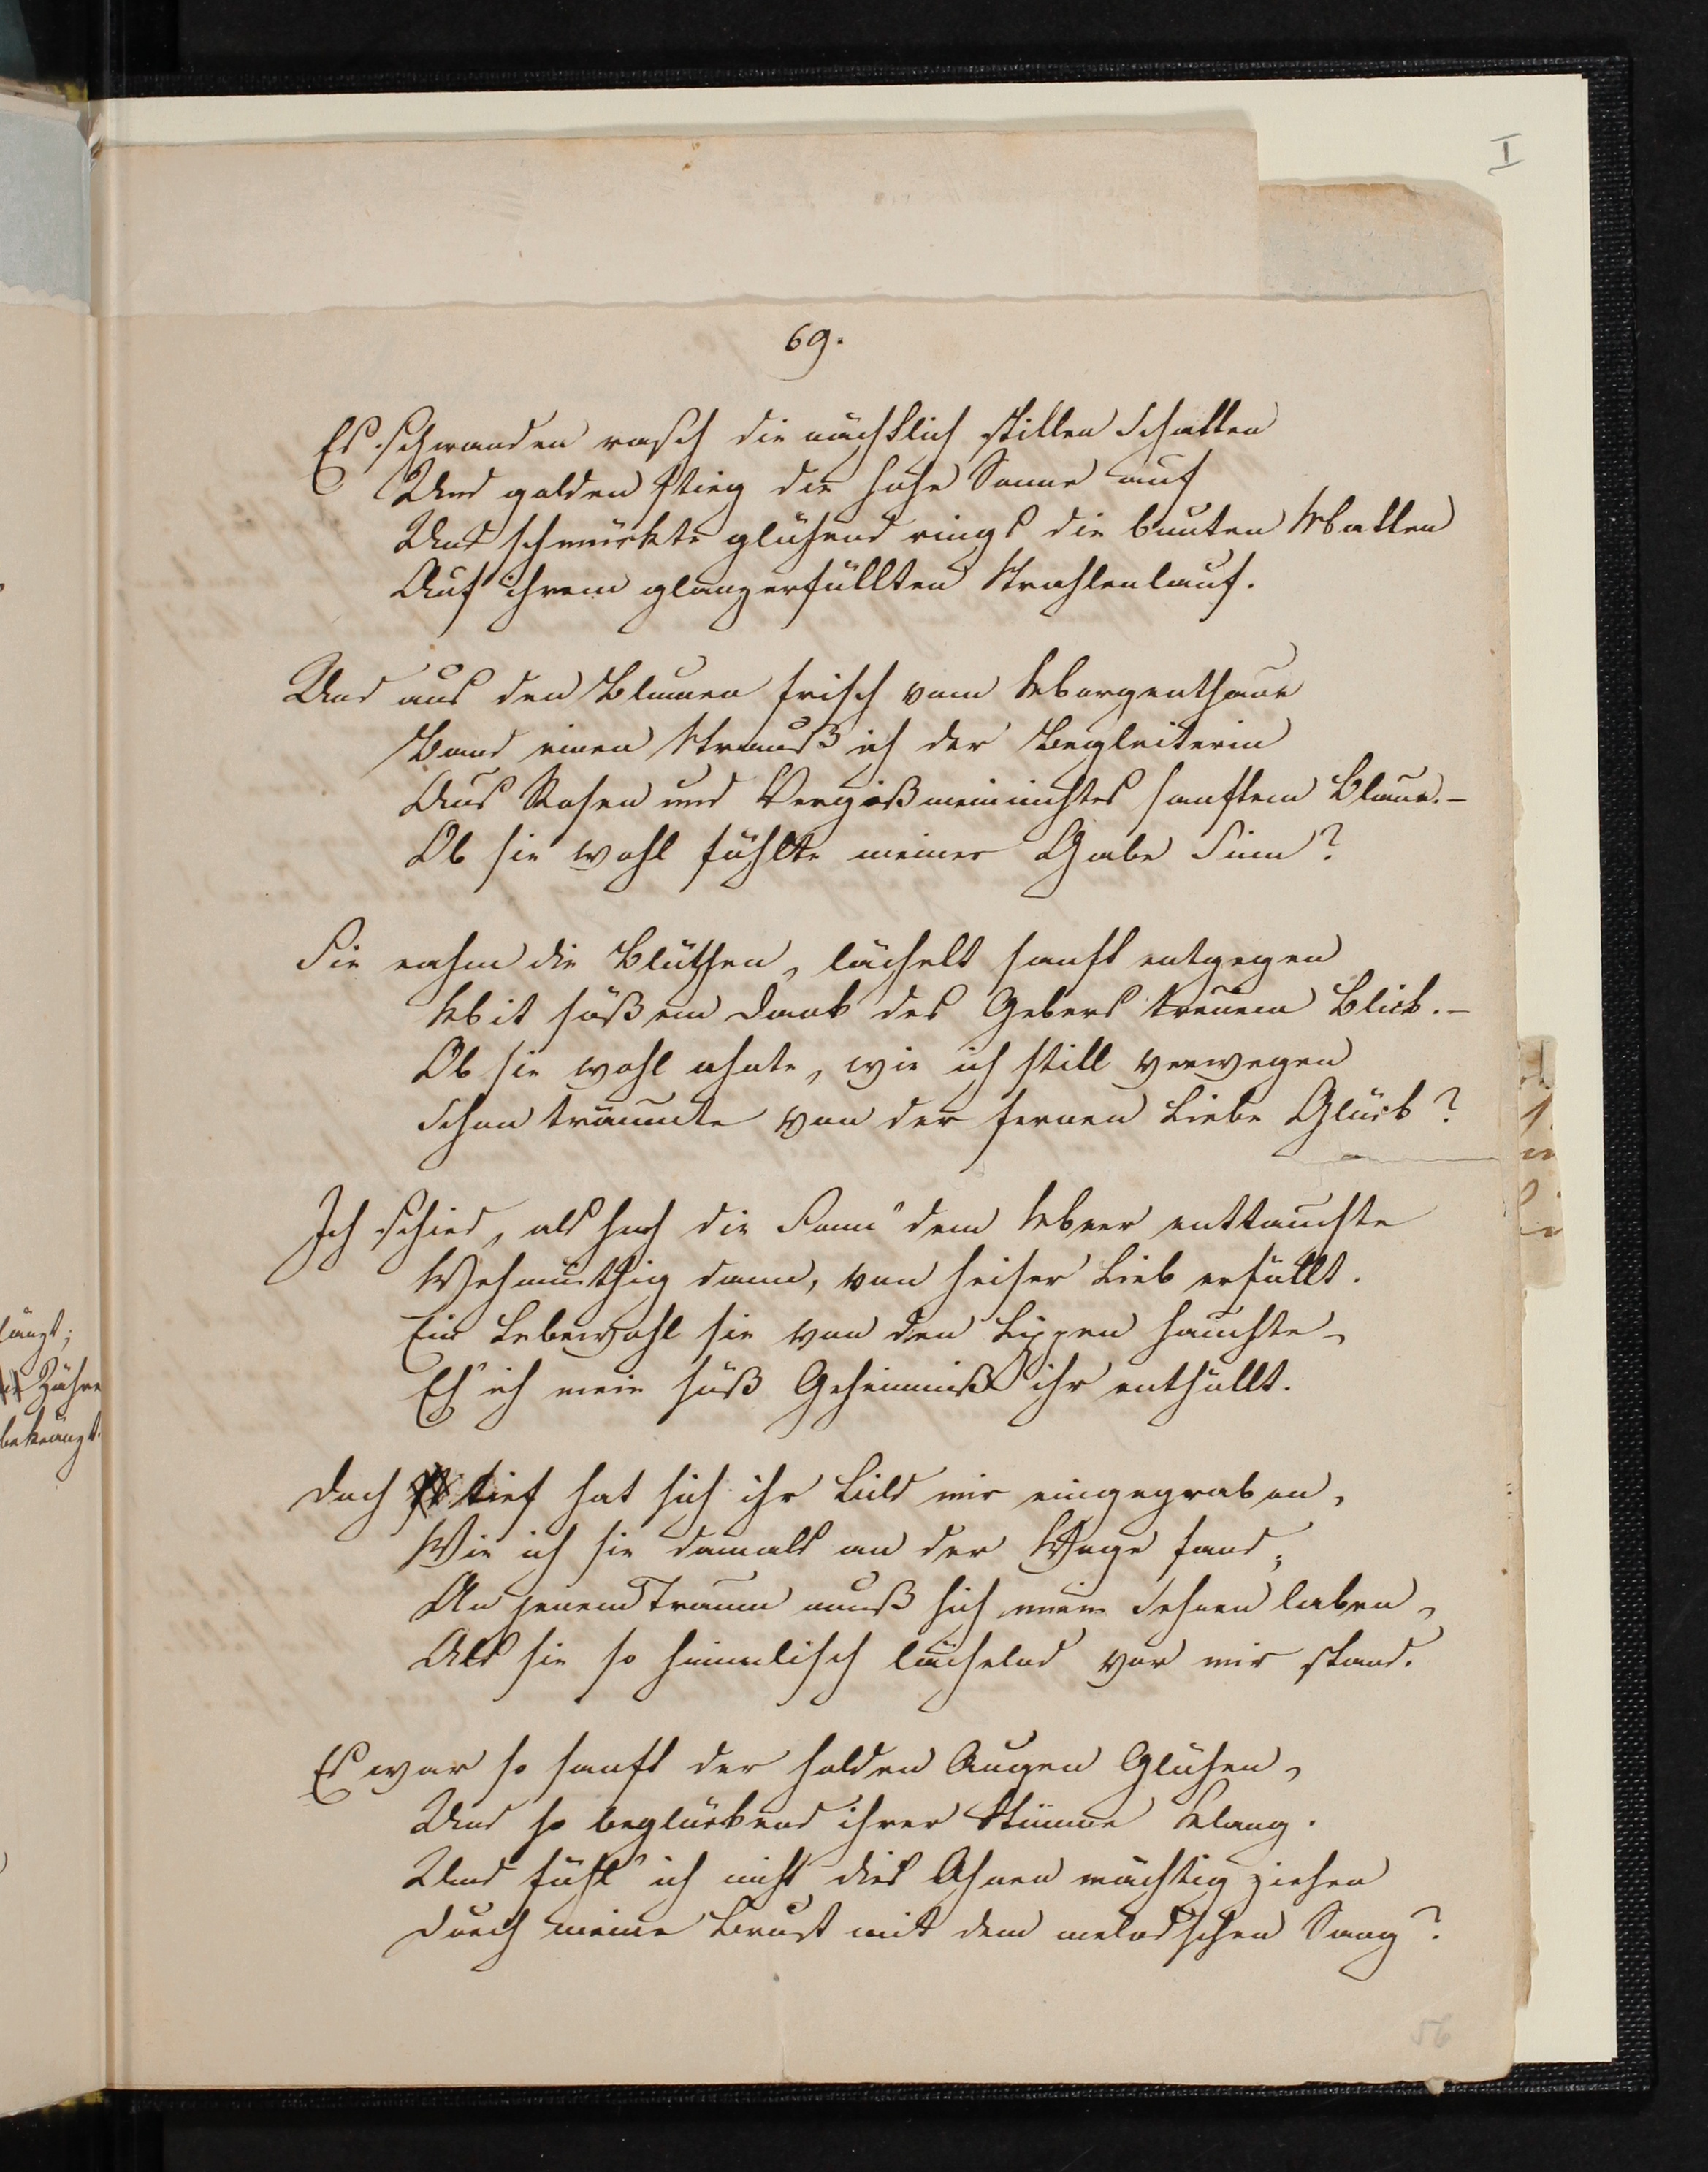 I
69.
Es schwanden rasch die nächtlich stillen Schatten
Und golden stieg die hohe Sonne auf
Und schmückte glühend rings die bunten Matten
Auf ihrem glanzerfüllten Strahlenlauf.
Und aus den Blumen frisch vom Morgenthaue
Band einen Strauß ich der Begleiterin
Aus Rosen und Vergißmeinnichtes sanftem Blaue. –
Ob sie wohl fühlte meiner Gabe Sinn?
Sie nahm die Blüthen, lächelt sanft entgegen
Mit süßem Dank des Gebers treuem Blick. –
Ob sie wohl ahnte, wie ich still verwegen
Schon träumte von der fernen Liebe Glück?
Ich schied, als hoch die Sonn' dem Meer enttauchte
Wehmüthig dann, von heiser Lieb erfüllt.
Ein Lebewohl sie von den Lippen hauchte,
Eh' ich mein süß Geheimniß ihr enthüllt.
Doch tief hat sich ihr Bild mir eingegraben,
Wie ich sie damals an der Woge fand;
An jenem Traum muß sich mein Sehnen laben,
Als sie so himmlisch lächelnd vor mir stand.
Es war so sanft der holden Augen Glühen,
Und so beglückend ihrer Stimme Klang.
Und fühl' ich nicht dies Ahnen mächtig ziehen
Durch meine Brust mit dem melod'schen Sang?
56